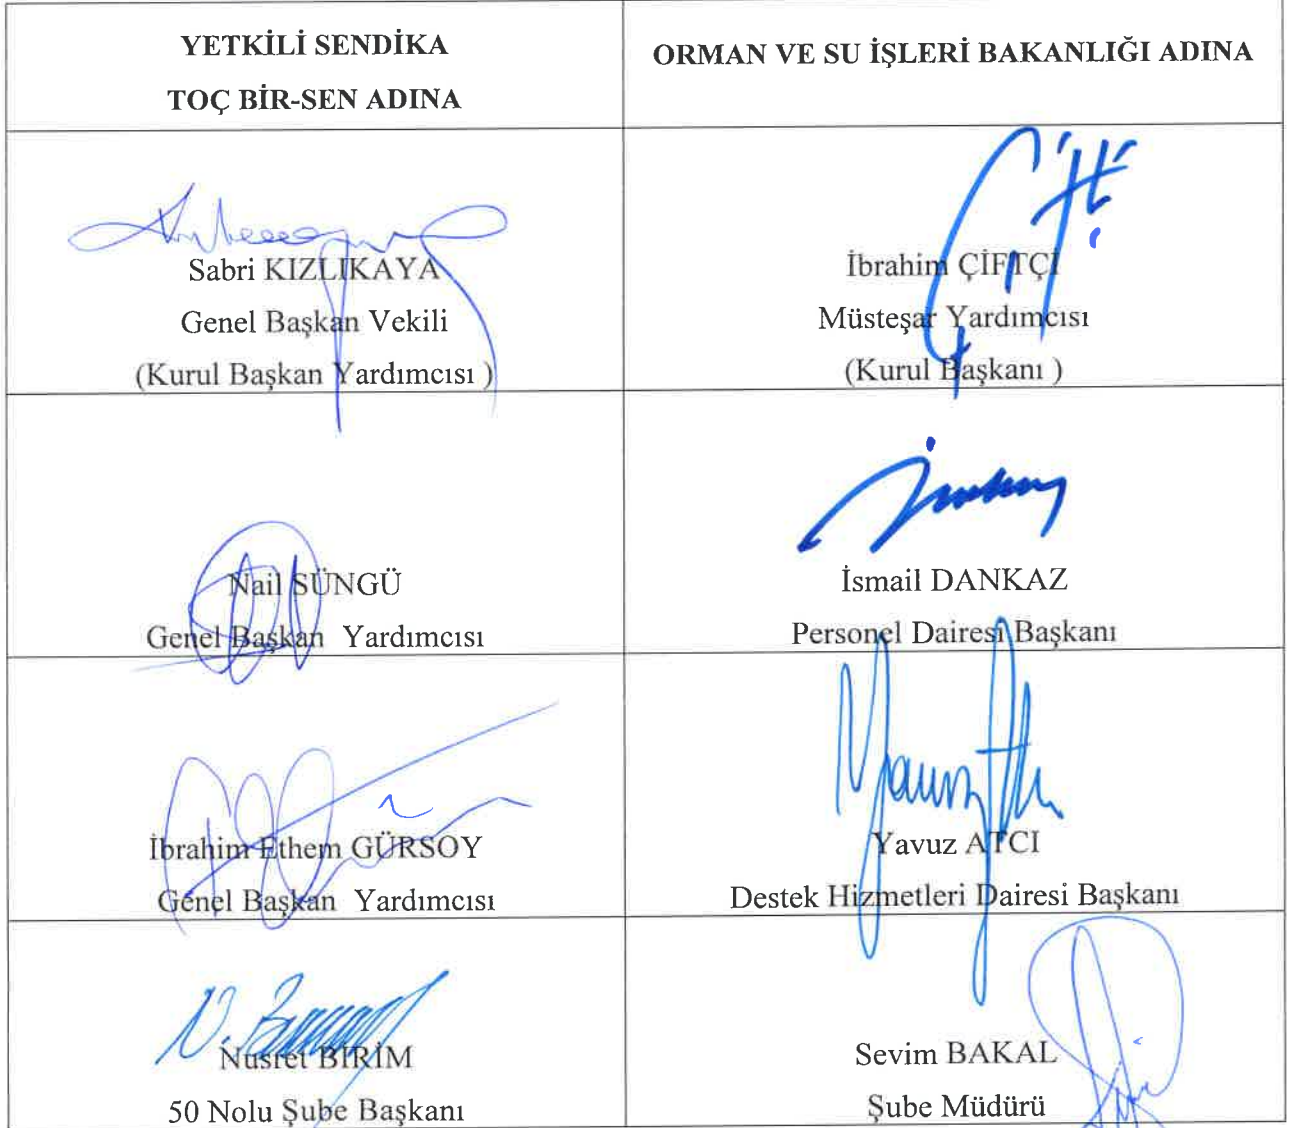 YETKİLİ SENDİKA
TOÇ BİR-SEN ADINA
ORMAN VE SU İŞLERİ BAKANLIĞI ADINA
Sabri KIZLIKAYA
Genel Başkan Vekili
(Kurul Başkan Yardımcısı )
İbrahim ÇİFTÇİ
Müsteşar Yardımcısı
(Kurul Başkanı )
Nail SÜNGÜ
Genel Başkan Yardımcısı
İsmail DANKAZ
Personel Dairesi Başkanı
İbrahim Ethem GÜRSOY
Genel Başkan Yardımcısı
Yavuz ATCI
Destek Hizmetleri Dairesi Başkanı
Nusret BİRİM
50 Nolu Şube Başkanı
Sevim BAKAL
Şube Müdürü